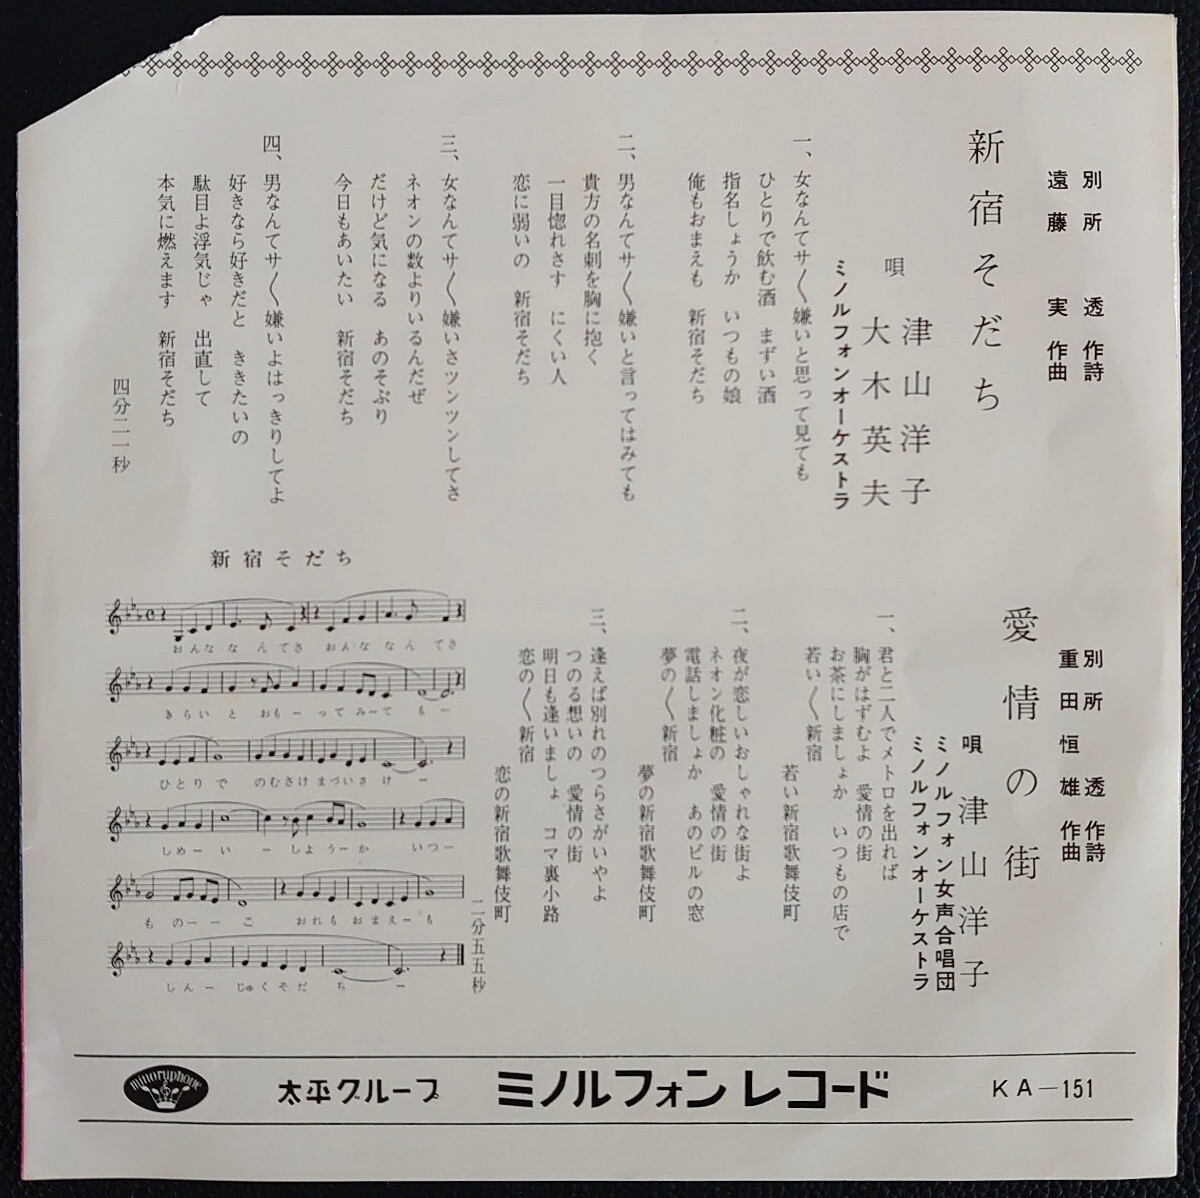 新宿そだち
別所 透 作詩
遠藤 実 作曲
唄
津山洋子
大木英夫
ミノルフォンオーケストラ
一、女なんてサ〳〵嫌いと思って見ても
ひとりで飲む酒 まずい酒
指名しょうか いつもの娘
俺もおまえも 新宿そだち
二、男なんてサ〳〵嫌いと言ってはみても
貴方の名刺を胸に抱く
一目惚れさす にくい人
恋に弱いの 新宿そだち
三、女なんてサ〳〵嫌いさツンツンしてさ
ネオンの数よりいるんだぜ
だけど気になる あのそぶり
今日もあいたい 新宿そだち
四、男なんてサ〳〵嫌いよはっきりしてよ
好きなら好きだと ききたいの
駄目よ浮気じゃ 出直して
本気に燃えます 新宿そだち
四分二一秒
愛情の街
別所 透 作詩
重田恒雄 作曲
唄 津山洋子
ミノルフォン女声合唱団
ミノルフォンオーケストラ
一、君と二人でメトロを出れば
胸がはずむよ 愛情の街
お茶にしましょか いつもの店で
若い〳〵新宿
若い新宿歌舞伎町
二、夜が恋しいおしゃれな街よ
ネオン化粧の 愛情の街
電話しましょか あのビルの窓
夢の〳〵新宿
夢の新宿歌舞伎町
三、逢えば別れのつらさがいやよ
つのる想いの 愛情の街
明日も逢いましょ コマ裏小路
恋の〳〵新宿
恋の新宿歌舞伎町
二分五五秒
新宿そだち
おんななんてさ おんななんてさ
きらいと おもーってみーてもー
ひとりで のむさけまづいさけー
しめーいーしようーか いつー
ものーーこ おれもおまえーも
しんーじゅくそだちー
minoruphone
太平グループ
ミノルフォンレコード
KA-151